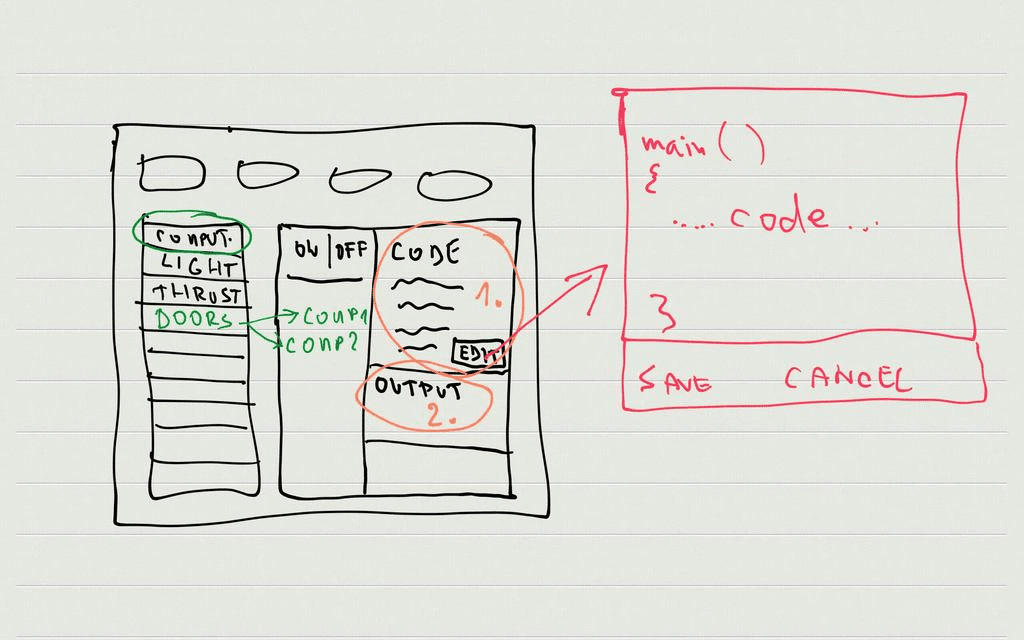 COMPUT.
LIGHT
THRUST
DOORS
ON | OFF
COMP1
COMP2
CODE
1.
EDIT
OUTPUT
2.
main ( )
{
..... code ...
}
SAVE CANCEL